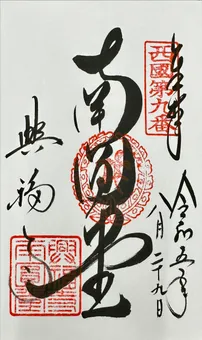 奉拝
西國第九番
令和五年
八月二十九日
南円堂
興福寺
興福寺
南円堂